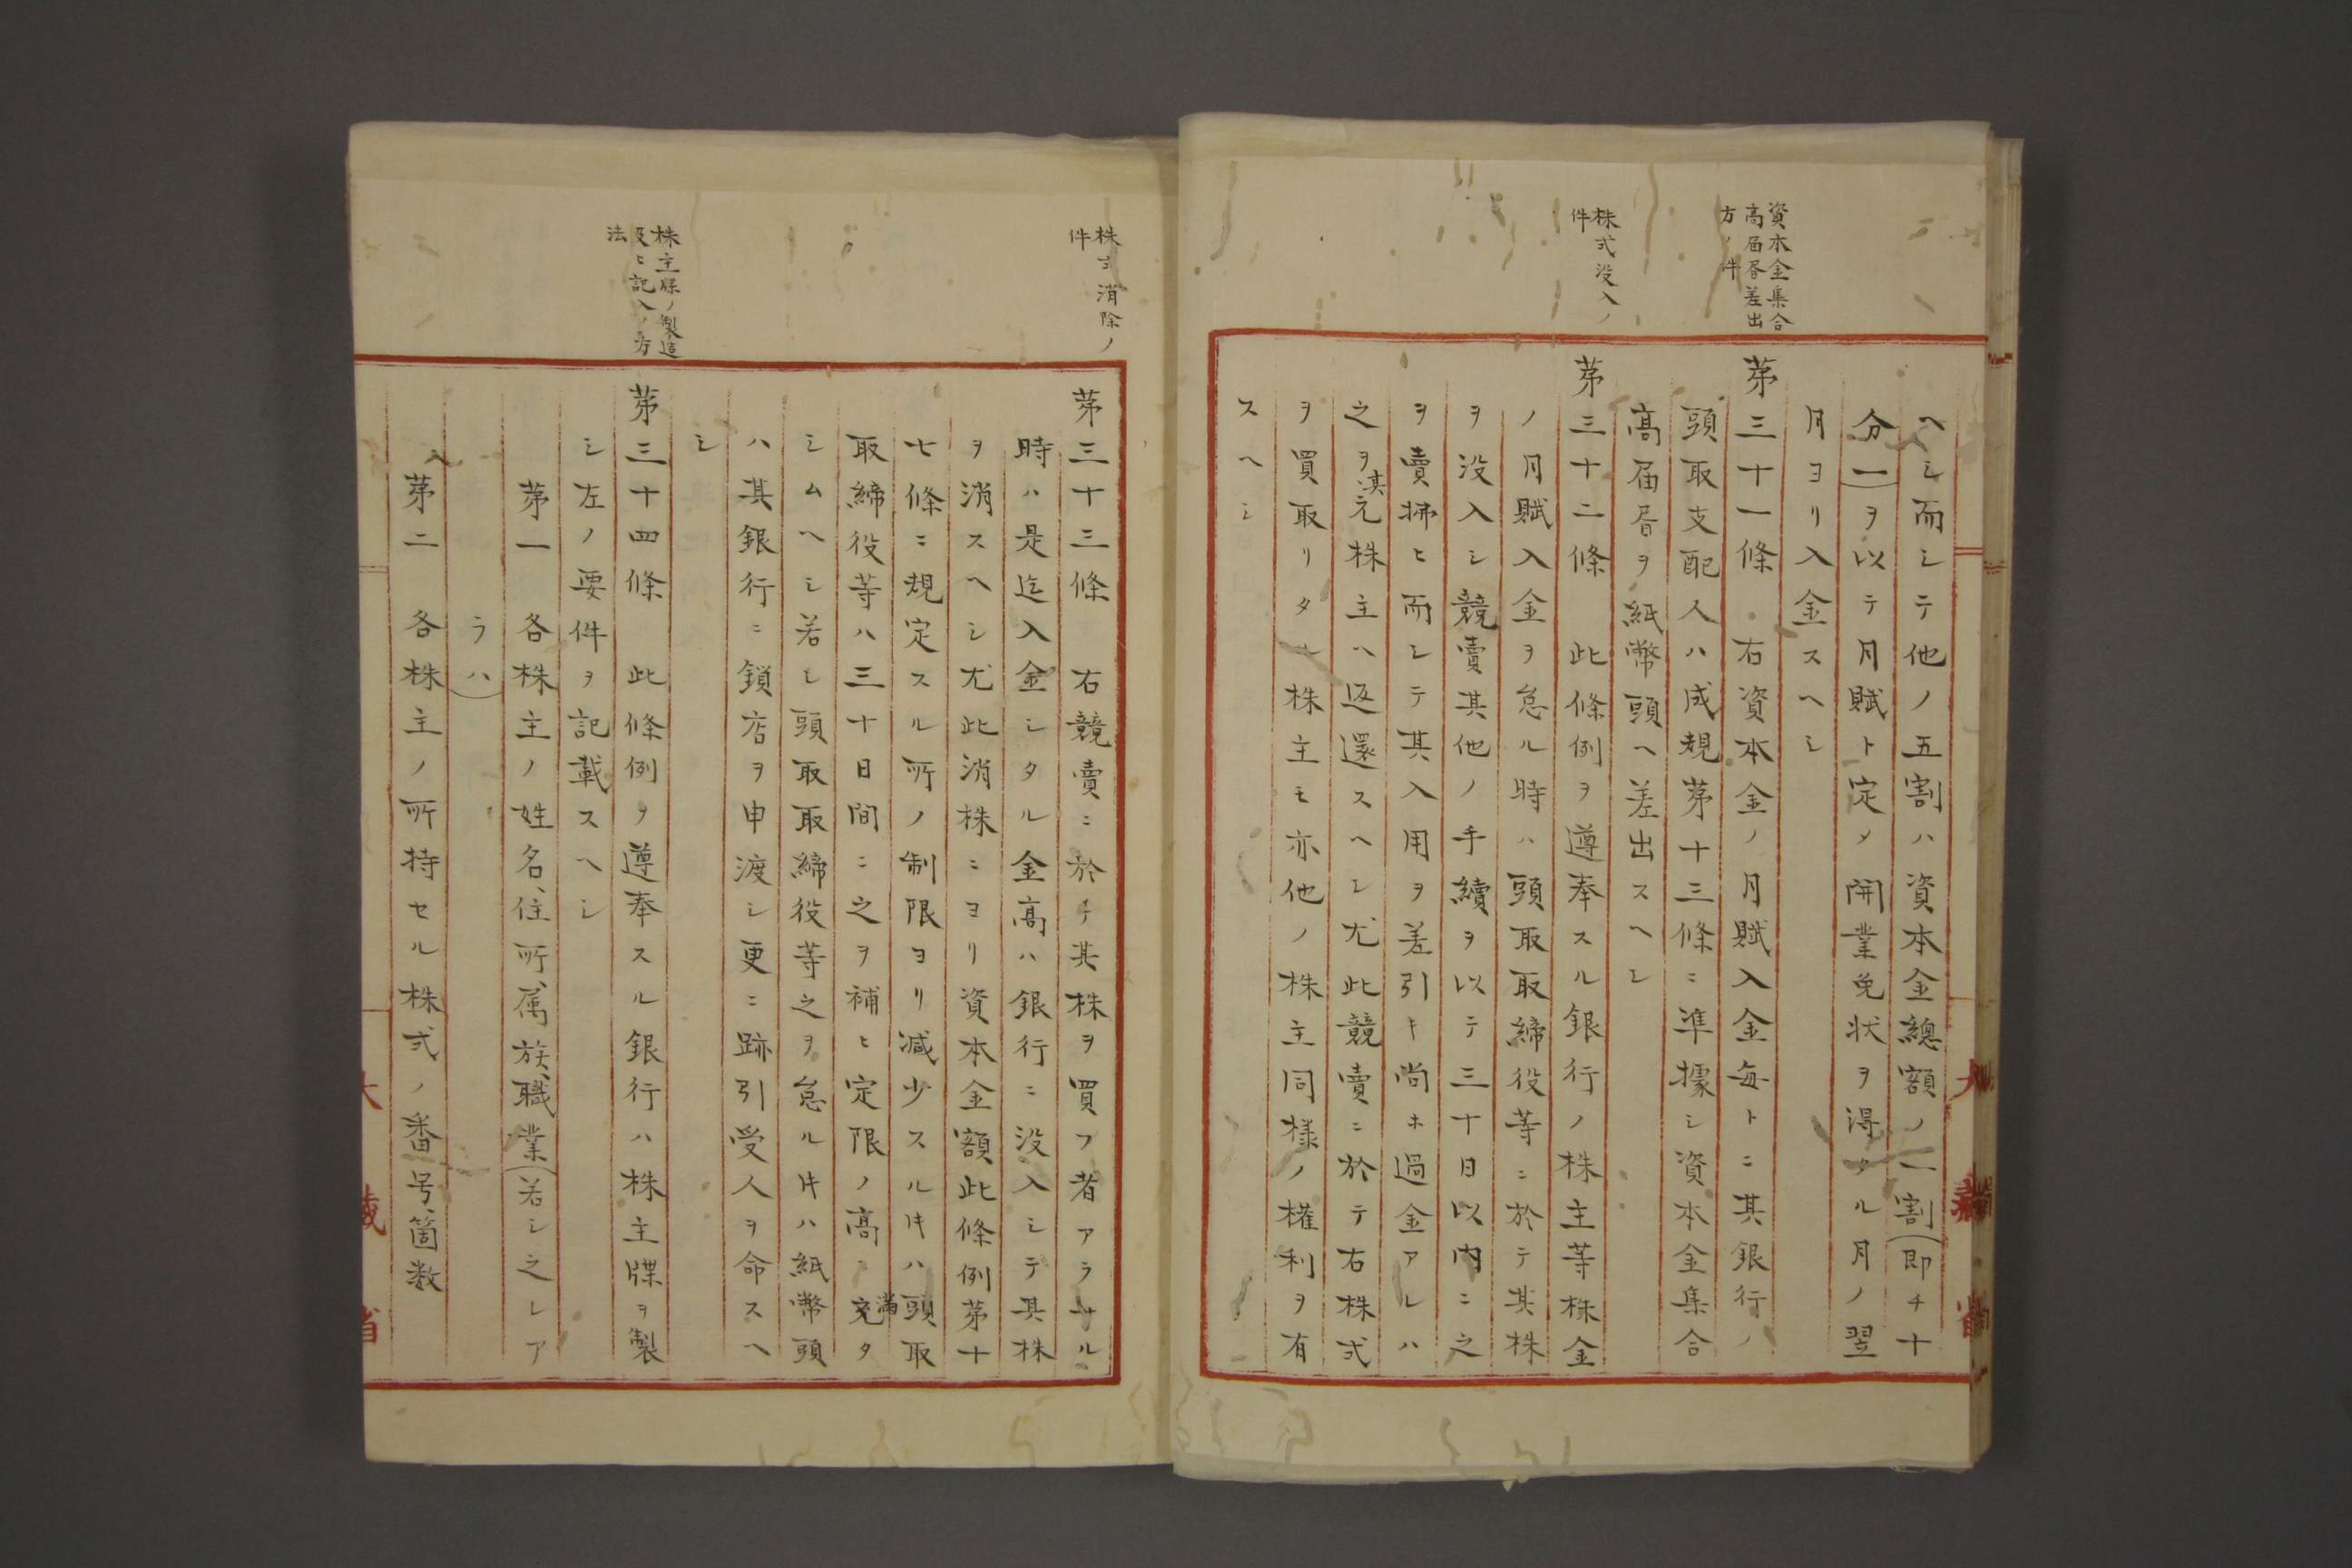 資本金集合
高届書差出
方ノ件
株式没入ノ
件
ヘシ而シテ他ノ五割ハ資本金總額ノ一割(即チ十
分一)ヲ以テ月賦ト定メ開業免状ヲ得タル月ノ翌
月ヨリ入金スヘシ
第三十一條 右資本金ノ月賦入金每トニ其銀行ノ
頭取支配人ハ成規第十三條ニ準據シ資本金集合
高届書ヲ紙幣頭ヘ差出スヘシ
第三十二條 此條例ヲ遵奉スル銀行ノ株主等株金
ノ月賦入金ヲ怠ル時ハ頭取取締役等ニ於テ其株
ヲ没入シ競賣其他ノ手續ヲ以テ三十日以内ニ之
ヲ賣拂ヒ而シテ其入用ヲ差引キ尚ホ過金アレハ
之ヲ其元株主ヘ返還スヘシ尤此競賣ニ於テ右株式
ヲ買取リタル株主モ亦他ノ株主同樣ノ權利ヲ有
スヘシ
大藏省
株式消除ノ
件
株主牒ノ製造
及ヒ記入ノ方
法
第三十三條 右競賣ニ於テ其株ヲ買フ者アラサル
時ハ是迄入金シタル金高ハ銀行ニ没入シテ其株
ヲ消スヘシ尤此消株ニヨリ資本金額此條例第十
七條ニ規定スル所ノ制限ヨリ減少スル㪅ハ頭取
取締役等ハ三十日間ニ之ヲ補ヒ定限ノ高ニ充滿タ
シムヘシ若シ頭取取締役等之ヲ怠ル㪅ハ紙幣頭
ハ其銀行ニ鎖店ヲ申渡シ更ニ跡引受人ヲ命スヘ
シ
第三十四條 此條例ヲ遵奉スル銀行ハ株主牒ヲ製
シ左ノ要件ヲ記載スヘシ
第一 各株主ノ姓名、住所、属族、職業(若シ之レア
ラハ)
第二 各株主ノ所持セル株式ノ番号、箇数
大藏省